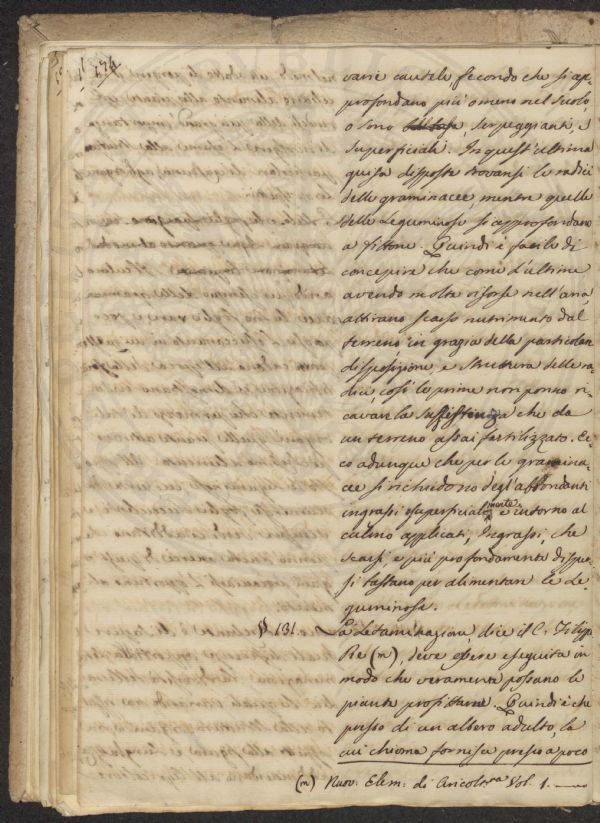 174
varie cautele secondo che si ap-
profondano più o meno nel suolo,
o sono serpeggianti, e
superficiali. In quest'ultima
guisa disposte trovansi le radici
delle graminacee, mentre quelle
delle Leguminose si approfondano
a fittone. Quindi è facile di
concepire che come l'ultime
avendo molte risorse nell'aria,
attirano scarso nutrimento dal
terreno in grazia della particolare
disposizione, e struttura delle ra-
dici così le prime non ponno ri-
cavare la sussistenza che da
un terreno assai fertilizzato. Ec-
co adunque che per le gramina-
cee si richiedono degl'abbondanti
ingrassi superficialmente e intorno al
culmo applicati, Ingrassi, che
scarsi, e più profondamente disper-
si bastano per alimentare le Le-
guminose.
§ 131. La Letaminazione, dice il C. Filippo
Re (m), deve essere eseguita in
modo che veramente possano le
piante profittarne. Quindi è che
presso di un albero adulto, la
cui chioma fornisce presso a poco
(m) Nuov: Elem: di Agricolt.ra Vol. 1.